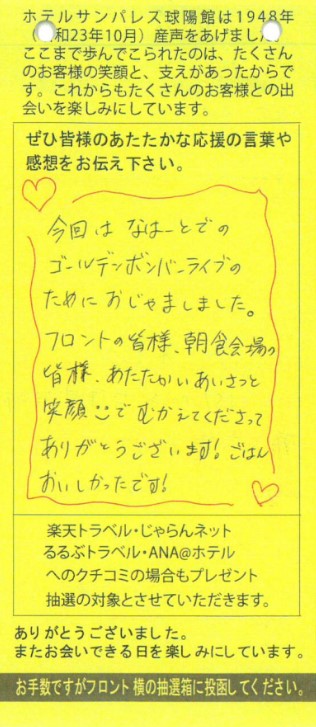 ホテルサンパレス球陽館は1948年
和23年10月）産声をあげまし
ここまで歩んでこられたのは、たくさん
のお客様の笑顔と、支えがあったからで
す。これからもたくさんのお客様との出
会いを楽しみにしています。
ぜひ皆様のあたたかな応援の言葉や
感想をお伝え下さい。
今回は なはーとでの
ゴールデンボンバーライブの
ために おじゃましました。
フロントの皆様、朝食会場の
皆様、あたたかいあいさつと
笑顔☺で むかえてくださって
ありがとうございます! ごはん
おいしかったです!
楽天トラベル・じゃらんネット
るるぶトラベル・ANA@ホテル
へのクチコミの場合もプレゼント
抽選の対象とさせていただきます。
ありがとうございました。
またお会いできる日を楽しみにしています。
お手数ですがフロント横の抽選箱に投函してください。